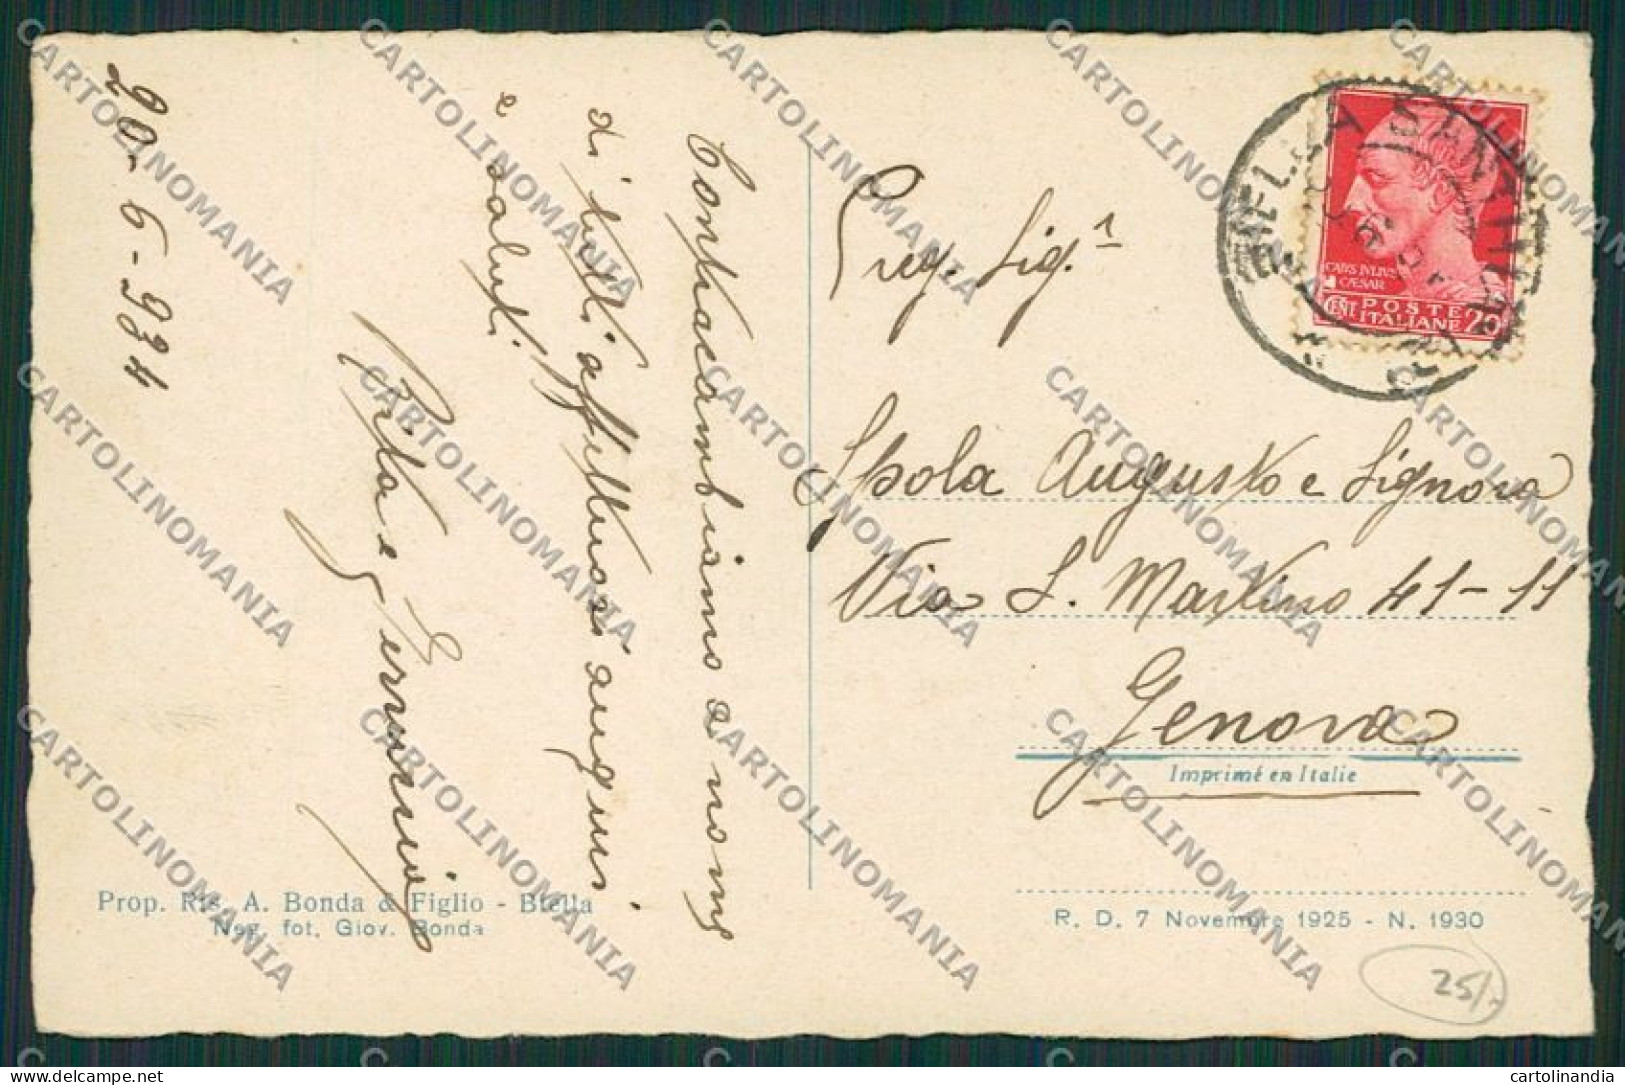 20-6-934
Contraccambiamo a nome
di tutti affettuosi auguri
e saluti.
Rita e Erminio
Preg. Sig.ʳ
Spola Augusto e Signora
Via S. Martino 41-11
Genova
Imprimé en Italie
R. D. 7 Novembre 1925 - N. 1930
Prop. Ris. A. Bonda & Figlio - Biella
Neg. fot. Giov. Bonda
CAIVS IVLIVS
CÆSAR
CENT POSTE 20
ITALIANE
25/-
CARTOLINOMANIA
delcampe.net
cartolinandia